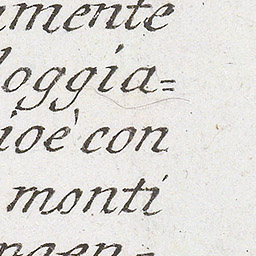 amente
loggia=
ioè con
monti